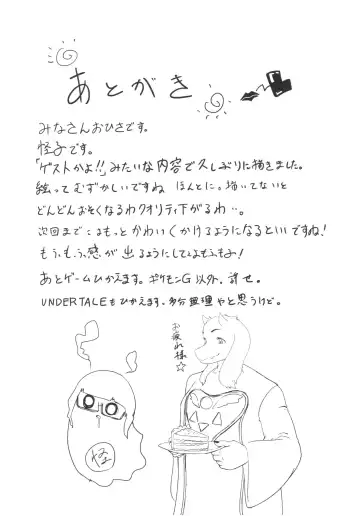 あとがき
みなさんおひさです。
怪子です。
「ゲストかよ!!」みたいな内容で久しぶりに描きました。
絵ってむずかしいですね ほんとに。描いてないと
どんどんおそくなるわクオリティ下がるわ…。
次回までにはもっとかわいくかけるようになるといいですね!
もふもふ感が出るようにしていよもふもふ!
あとゲームひかえます。ポケモンG以外、許せ。
UNDERTALEもひかえます、多分無理やと思うけど。
お疲れ様☆
怪